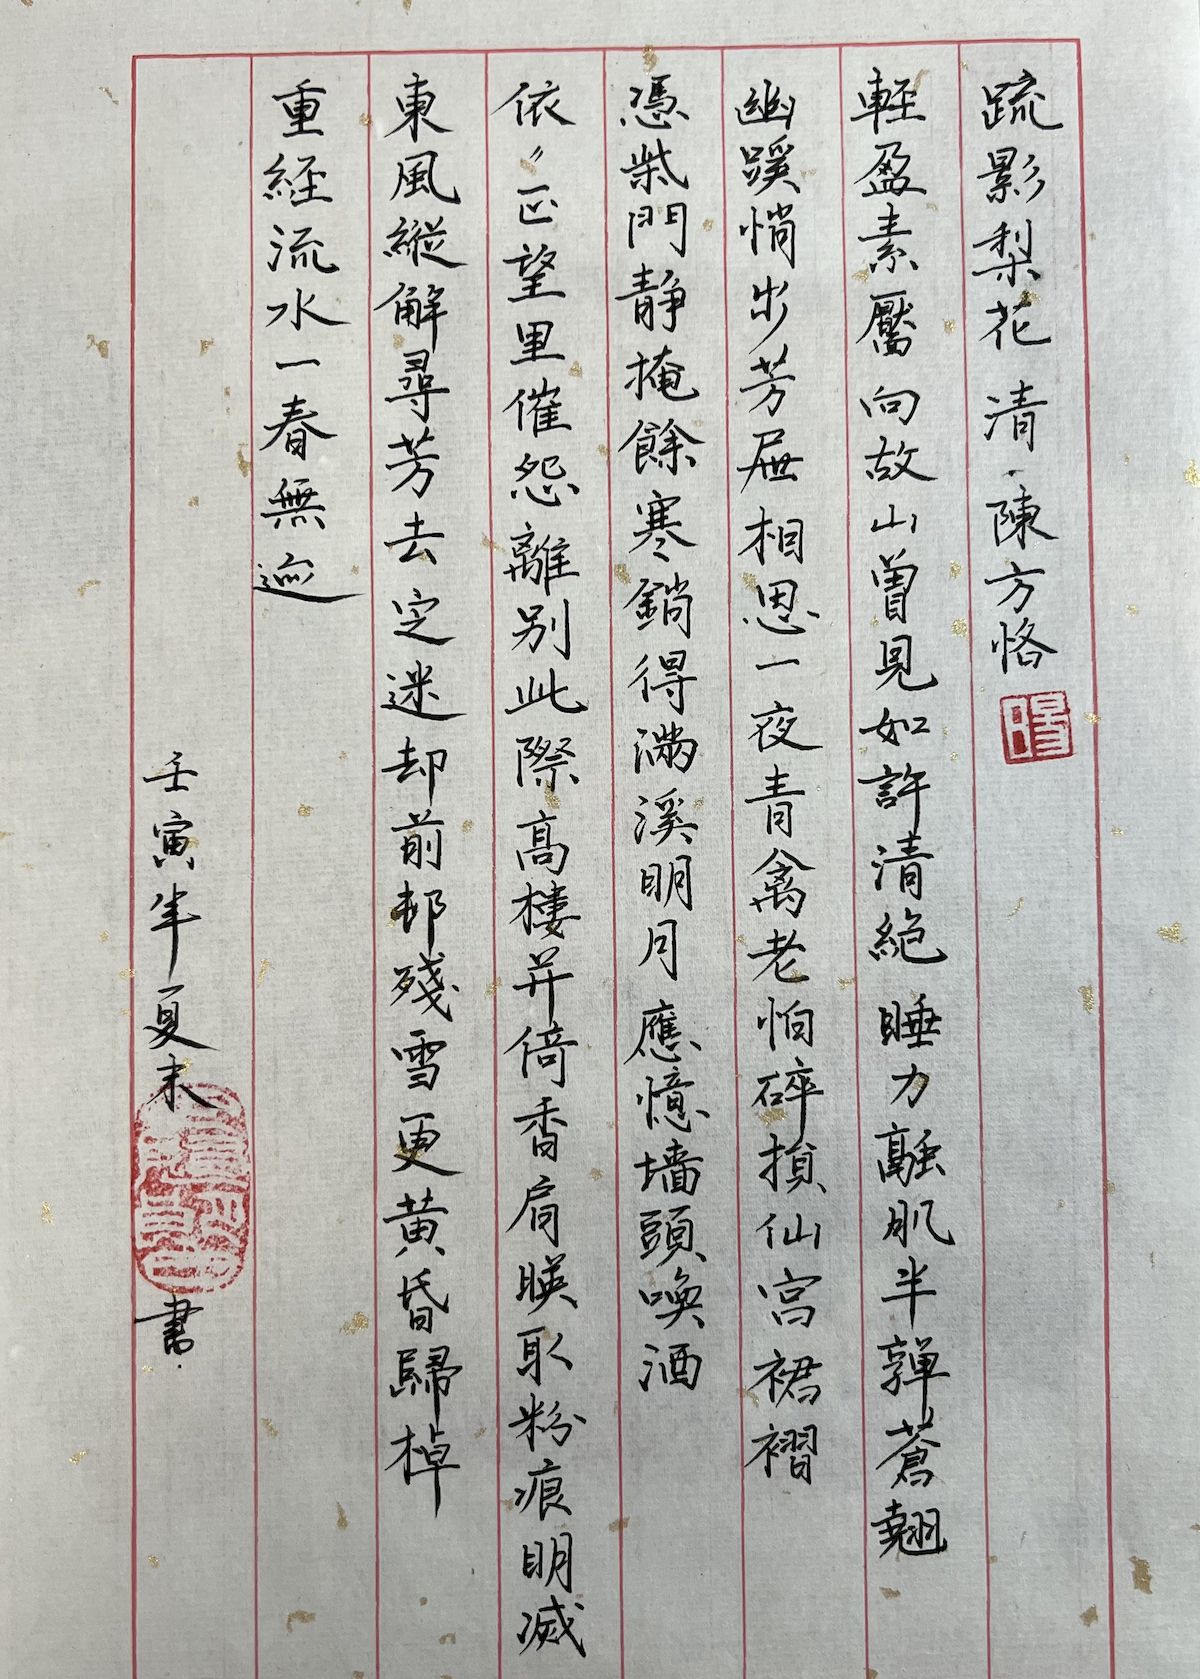 疏影梨花 清·陳方恪
輕盈素靨向故山曾見如許清絕睡力融肌半嚲蒼翹
幽蹊悄步芳屜相思一夜青禽老怕碎損仙宫裙褶
憑柴門靜掩餘寒銷得滿溪明月應憶墻頭喚酒
依〃正望里催怨離别此際高樓并倚香肩暎取粉痕明滅
東風縱解尋芳去定迷却前邨殘雪更黄昏歸棹
重経流水一春無迹
壬寅年夏末
書